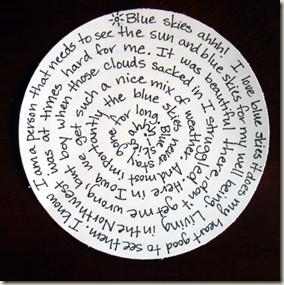 Blue skies ahhh! I love blue skies it does my heart good to see them. I know I am a person that needs to see the sun and blue skies for my well being. Living in the Northwest was at times hard for me. It was beautiful there don't get me wrong but boy when those clouds sacked in I struggled. Here in Iowa we get such a nice mix of weather. And most importantly the blue skies never stay for long